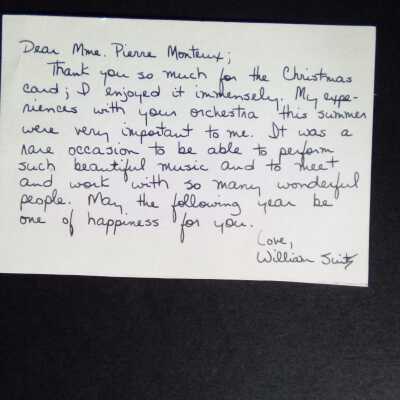 Dear Mme. Pierre Monteux;
Thank you so much for the Christmas
card; I enjoyed it immensely. My expe-
riences with your orchestra this summer
were very important to me. It was a
rare occasion to be able to perform
such beautiful music and to meet
and work with so many wonderful
people. May the following year be
one of happiness for you.
Love,
William